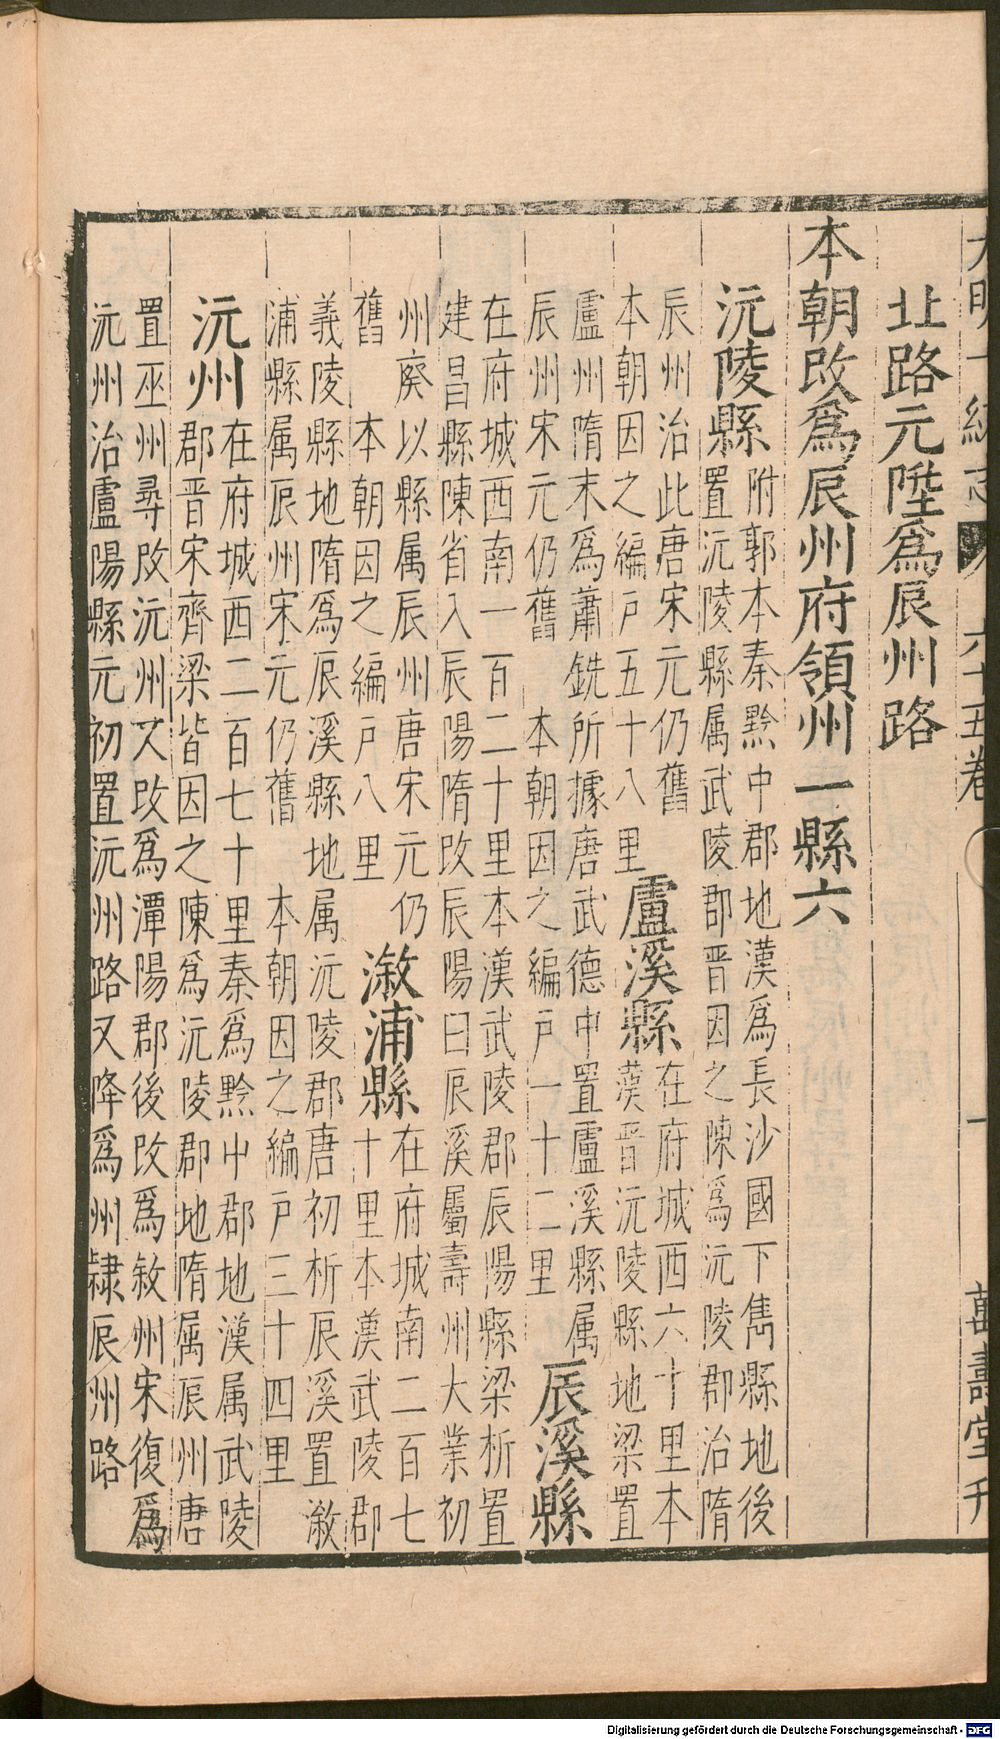 大明一統志 六十五卷 一 萬壽堂刊
北路元陞爲辰州路
本朝改爲辰州府領州一縣六
沅陵縣
附郭本秦黔中郡地漢爲長沙國下雋縣地後
置沅陵縣属武陵郡晉因之陳爲沅陵郡治隋
辰州治此唐宋元仍舊
本朝因之編戸五十八里
盧溪縣
在府城西六十里本
漢晉沅陵縣地梁置
盧州隋末爲蕭銑所據唐武德中置盧溪縣属
辰州宋元仍舊 本朝因之編戸一十二里
辰溪縣
在府城西南一百二十里本漢武陵郡辰陽縣梁析置
建昌縣陳省入辰陽隋改辰陽曰辰溪屬壽州大業初
州廢以縣属辰州唐宋元仍
舊 本朝因之編戸八里
漵浦縣
在府城南二百七
十里本漢武陵郡
義陵縣地隋爲辰溪縣地属沅陵郡唐初析辰溪置漵
浦縣属辰州宋元仍舊 本朝因之編戸三十四里
沅州
在府城西二百七十里秦爲黔中郡地漢属武陵
郡晉宋齊梁皆因之陳爲沅陵郡地隋属辰州唐
置巫州尋改沅州又改爲潭陽郡後改爲敘州宋復爲
沅州治盧陽縣元初置沅州路又降爲州隸辰州路
Digitalisierung gefördert durch die Deutsche Forschungsgemeinschaft - DFG